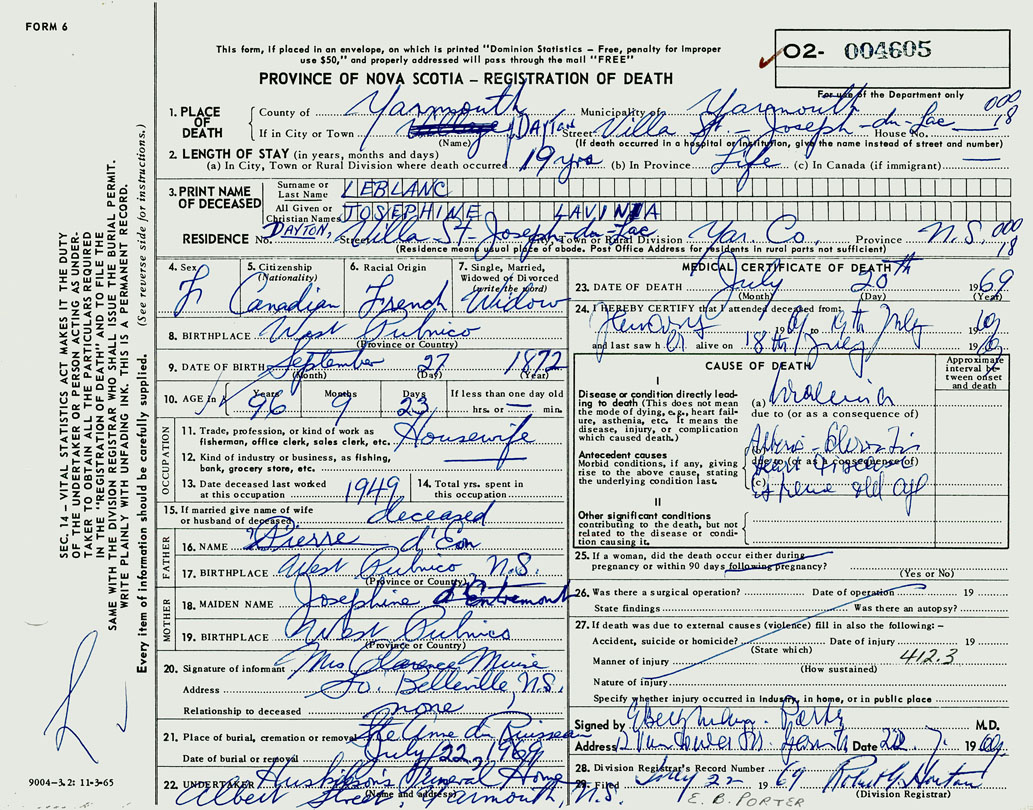 FORM 6
This form, if placed in an envelope, on which is printed "Dominion Statistics – Free, penalty for improper
use $50," and properly addressed will pass through the mail "FREE"
O2- 004605
For use of the Department only
PROVINCE OF NOVA SCOTIA – REGISTRATION OF DEATH
1. PLACE OF DEATH
County of Yarmouth Municipality of Yarmouth 000
If in City or Town Dayton Street Villa St. – Joseph-du-Lac House No. 18
(Name) (If death occurred in a hospital or institution, give the name instead of street and number)
2. LENGTH OF STAY (in years, months and days)
(a) In City, Town or Rural Division where death occurred 19 yrs (b) In Province Life (c) In Canada (if immigrant) —
3. PRINT NAME OF DECEASED
Surname or Last Name LEBLANC
All Given or Christian Names JOSEPHINE LAVINIA
RESIDENCE No. DAYTON, Street Villa St. Joseph-du-Lac City, Town or Rural Division Yar. Co. Province N.S. 000
(Residence means usual place of abode. Post Office Address for residents in rural parts not sufficient) 18
4. Sex F
5. Citizenship (Nationality) Canadian
6. Racial Origin French
7. Single, Married, Widowed or Divorced (write the word) Widow
8. BIRTHPLACE West Pubnico
(Province or County)
9. DATE OF BIRTH September 27 1872
(Month) (Day) (Year)
10. AGE in Years 96 Months 9 Days 23 If less than one day old hrs. or min.
OCCUPATION
11. Trade, profession, or kind of work as fisherman, office clerk, sales clerk, etc. Housewife
12. Kind of industry or business, as fishing, bank, grocery store, etc.
13. Date deceased last worked at this occupation 1949
14. Total yrs. spent in this occupation
15. If married give name of wife or husband of deceased deceased
FATHER
16. NAME Pierre d'Eon
17. BIRTHPLACE West Pubnico, N.S.
(Province or County)
MOTHER
18. MAIDEN NAME Josephine d'Entremont
19. BIRTHPLACE West Pubnico
(Province or County)
20. Signature of informant Mrs Clarence Muise
Address So. Belleville, N.S.
Relationship to deceased none
21. Place of burial, cremation or removal Ste Anne du Ruisseau
Date of burial or removal July 22, 1969
22. UNDERTAKER Huskilson's Funeral Home
(Name and address)
Albert Street, Yarmouth, N.S.
MEDICAL CERTIFICATE OF DEATH
23. DATE OF DEATH July 20th 1969
(Month) (Day) (Year)
24. I HEREBY CERTIFY that I attended deceased from
19 to July 19
and last saw her alive on 18th July 19
CAUSE OF DEATH
Approximate interval between onset and death
I
Disease or condition directly leading to death (This does not mean the mode of dying, e.g., heart failure, asthenia, etc. It means the disease, injury, or complication which caused death.)
(a) Uraemia
due to (or as a consequence of)
Antecedent causes
Morbid conditions, if any, giving rise to the above cause, stating the underlying condition last.
due to (or as a consequence of)
Heart Disease
(c) Extreme old age
II
Other significant conditions contributing to the death, but not related to the disease or condition causing it.
25. If a woman, did the death occur either during pregnancy or within 90 days following pregnancy?
(Yes or No)
26. Was there a surgical operation? Date of operation 19
State findings Was there an autopsy?
27. If death was due to external causes (violence) fill in also the following: –
Accident, suicide or homicide? Date of injury 19
(State which)
Manner of injury 412.3
(How sustained)
Nature of injury
Specify whether injury occurred in industry, in home, or in public place
Signed by Porter M.D.
Address Vancouver St. Date 22. 7. 1969
28. Division Registrar's Record Number
29. Filed July 22 1969
(Division Registrar)
E. B. PORTER
SEC. 14 – VITAL STATISTICS ACT MAKES IT THE DUTY
OF THE UNDERTAKER OR PERSON ACTING AS UNDERTAKER
TO OBTAIN ALL THE PARTICULARS REQUIRED
IN THE "REGISTRATION OF DEATH", AND TO FILE THE
SAME WITH THE DIVISION REGISTRAR WHO SHALL ISSUE THE BURIAL PERMIT.
WRITE PLAINLY WITH UNFADING INK. THIS IS A PERMANENT RECORD.
Every item of information should be carefully supplied. (See reverse side for instructions.)
9004-3.2: 11-3-65